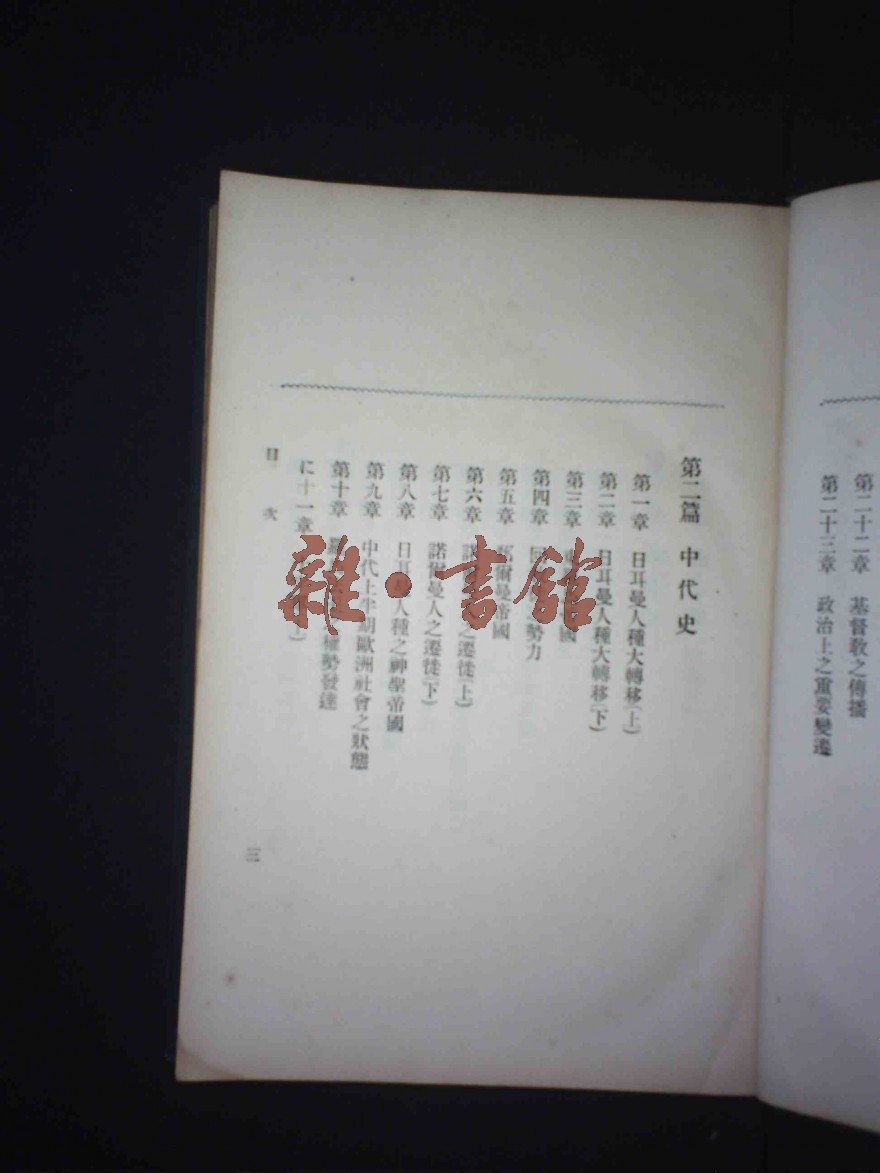 第二十二章 基督敎之傳播
第二十三章 政治上之重要變遷
第二篇 中代史
第一章 日耳曼人種大轉移(上)
第二章 日耳曼人種大轉移(下)
第三章 東 國
第四章 回 之勢力
第五章 爾曼帝國
第六章 諾 之遷徙(上)
第七章 諾爾曼人之遷徙(下)
第八章 日耳曼人種之神聖帝國
第九章 中代上半期歐洲社會之狀態
第十章 羅 權勢發達
十一章 上)
目次
三
雜·書館